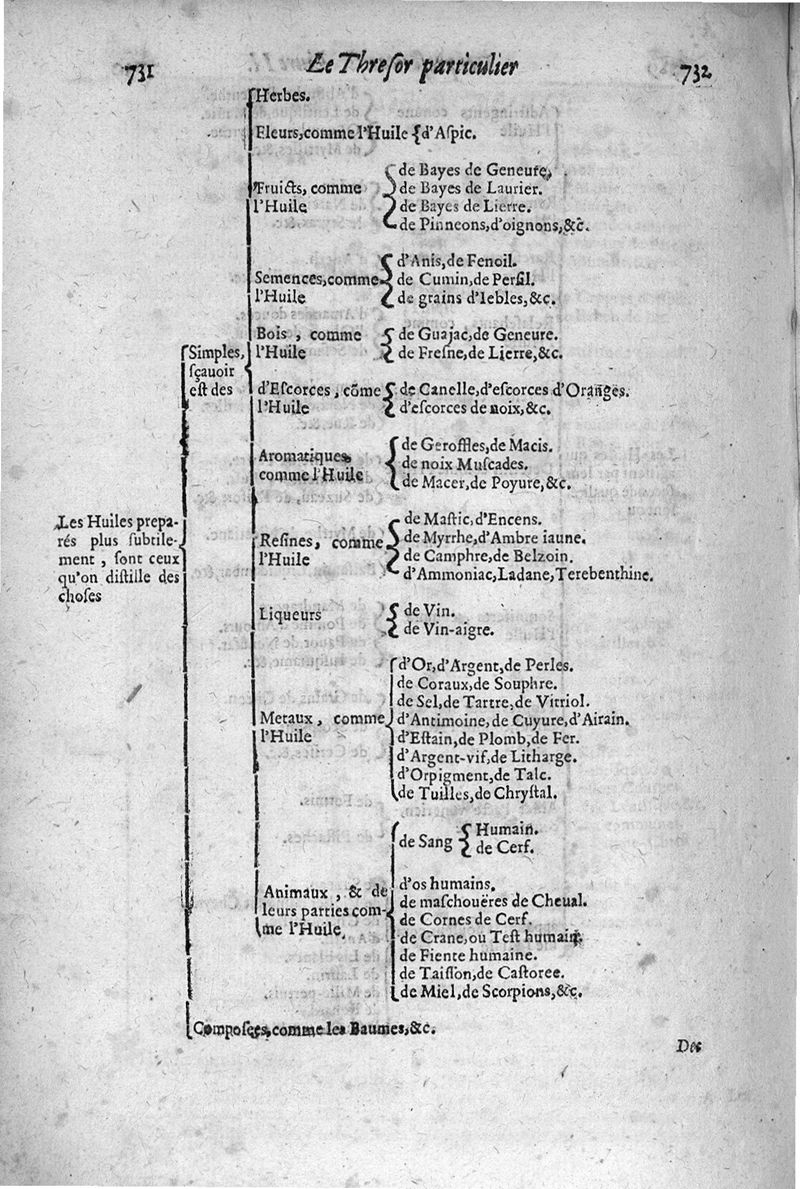 731
Le Thresor particulier
732
Herbes.
Fleurs, comme l'Huile { d'Aspic.
Fruicts, comme
l'Huile
de Bayes de Geneure,
de Bayes de Laurier.
de Bayes de Lierre.
de Pinneons, d'oignons, &c.
Semences, comme
l'Huile
d'Anis, de Fenoil.
de Cumin, de Persil.
de grains d'Iebles, &c.
Bois, comme
l'Huile
de Guajac, de Geneure.
de Fresne, de Lierre, &c.
Simples,
sçauoir
est des
d'Escorces, cõme
l'Huile
de Canelle, d'escorces d'Oranges.
d'escorces de noix, &c.
Aromatiques,
comme l'Huile
de Geroffles, de Macis.
de noix Muscades.
de Macer, de Poyure, &c.
Les Huiles prepa-
rés plus subtile-
ment, sont ceux
qu'on distille des
choses
Resines, comme
l'Huile
de Mastic, d'Encens.
de Myrrhe, d'Ambre iaune.
de Camphre, de Belzoin.
d'Ammoniac, Ladane, Terebenthine.
Liqueurs
de Vin.
de Vin-aigre.
Metaux, comme
l'Huile
d'Or, d'Argent, de Perles.
de Coraux, de Souphre.
de Sel, de Tartre, de Vitriol.
d'Antimoine, de Cuyure, d'Airain.
d'Estain, de Plomb, de Fer.
d'Argent-vif, de Litharge.
d'Orpigment, de Talc.
de Tuilles, de Chrystal.
Animaux, & de
leurs parties com-
me l'Huile,
de Sang
Humain.
de Cerf.
d'os humains.
de maschoueres de Cheual.
de Cornes de Cerf.
de Crane, ou Test humain.
de Fiente humaine.
de Taisson, de Castoree.
de Miel, de Scorpions, &c.
Composes, comme les Baumes, &c.
Des